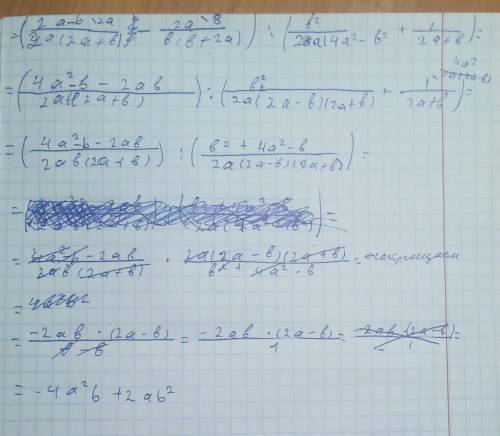 =(2a-b·2a / 2a(2a+b) - 2a·b / b(b+2a)) : (b² / 2a(4a²-b² + 1 / 2a+b)=
=(4a²-b-2ab / 2ab(2a+b)) : (b² / 2a(2a-b)(2a+b) + 1 / 2a+b)= 4a²
=(4a²-b-2ab / 2ab(2a+b)) : (b²+4a²-b / 2a(2a-b)(2a+b))=
=
= 4a²-b-2ab / 2ab(2a+b) · 2a(2a-b)(2a+b) / b²+4a²-b = сокращаем
=
= -2ab·(2a-b) / b-b = -2ab·(2a-b) / 1 = 2ab(2a-b) / 1 =
= -4a²b+2ab²